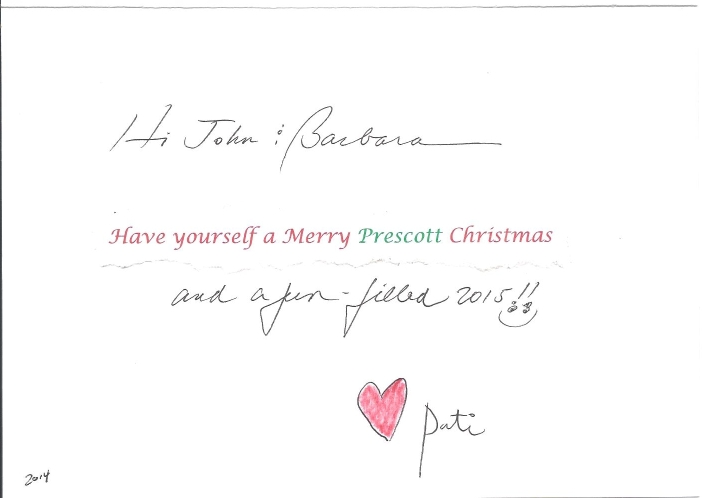 Hi John & Barbara
Have yourself a Merry Prescott Christmas
and a fun-filled 2015!!
Pati
2014